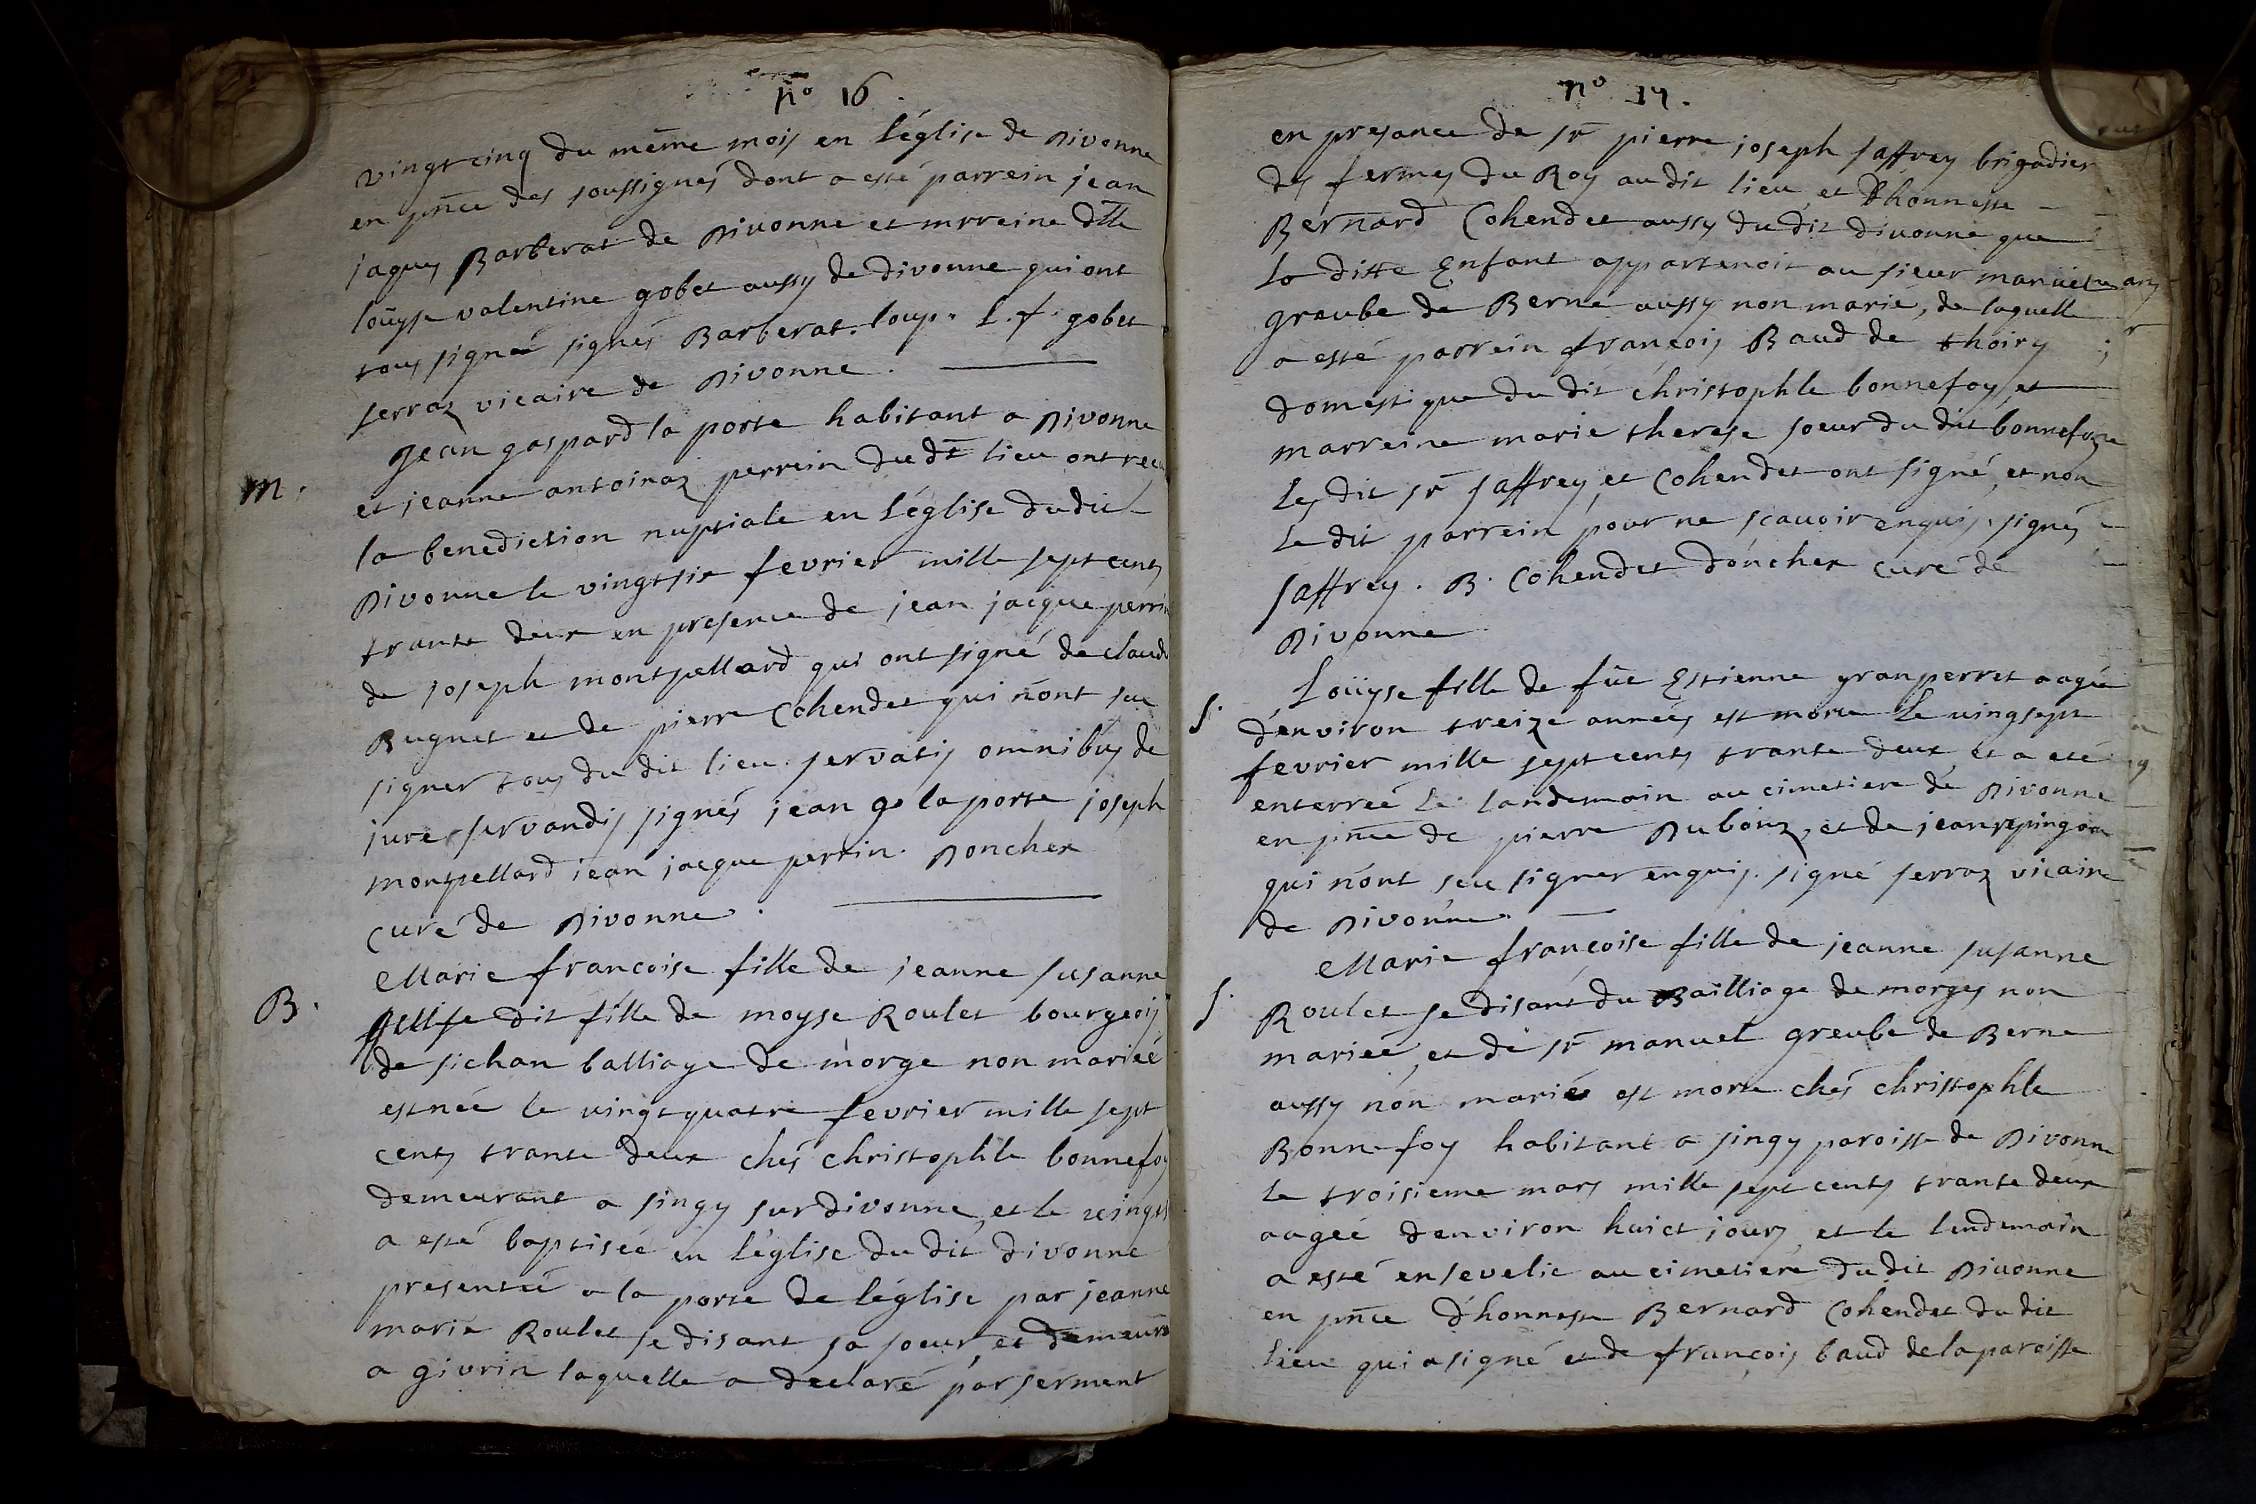 n° 16.
vingt cinq du même mois en L'église de Divonne
en pñce des soussignés dont a esté parrein jean
jaques Barberat de Divonne et mrreine dlle
loüyse valentine gobet aussy de divonne qui ont
tous signé signés Barberat. loup. L. f. gobet
serraz vicaire de Divonne.
m.
Jean gaspard la porte habitant a Divonne
et jeanne antoinaz perrein dudt lieu ont recu
la benediction nuptiale en L'église dudit
Divonne le vingt six fevrier mille sept cents
trante deux en presence de jean jacque perrin
de joseph montpellard qui ont signé de claude
Bugnet et de pierre Cohendet qui n'ont sue
signer tous du dit lieu servatis omnibus de
jure servandis signés jean g. la porte joseph
montpellard jean jacque perrin. Doncher
curé de Divonne.
B.
Marie francoise fille de jeanne susanne
dit fille de moyse Roulet bourgeois
de sichan balliage de morge non mariée
est née le vingt quatre fevrier mille sept
cents trante deux chés christophle bonnefoy
demeurant a singy sur divonne, et le vingt
a esté baptisée en L'église du dit divonne
presentée a la porte de l'église par jeanne
marie Roulet se disant sa soeur, et demeurt
a givrin laquelle a declaré par serment
n° 17.
en presance de sr pierre joseph saffrey brigadier
des fermes du Roy audit lieu et Dhonneste
Bernard Cohendet aussy du dit divonne que
la ditte Enfant appartenoit au sieur manuel
greube de Berne aussy non marié, de laquelle
a esté parrein françois Baud de thoiry
domestique du dit christophle bonnefoy, et
marreine marie therese soeur du dit bonnefoy
Les dit sr saffrey, et Cohendet ont signé, et non
le dit parrein pour ne scavoir enquis. signés
saffrey. B. Cohendet doncher curé de
Divonne
s.
Loüyse fille de füe Estienne granperret aagée
d'environ treize années est morte Le vingsept
fevrier mille sept cents trante deux et a eté
enterreé Le landemain au cimetiere de Divonne
en pñce de pierre Dubouz, et de jean
qui n'ont sceu signer enquis. signé serraz vicaire
de Divonne.
s.
Marie françoise fille de jeanne susanne
Roulet se disant du Bailliage de morges non
mariée, et de sr manuel greube de Berne
aussy non marié est morte chés christophle
Bonnefoy habitant a singy paroisse de Divonne
le troisieme mars mille sept cents trante deux
aagée d'environ huict jours, et le lendemain
a esté ensevelie au cimetiere du dit Divonne
en pñce d'honneste Bernard Cohendet du dit
lieu qui a signé et de françois baud de la paroisse